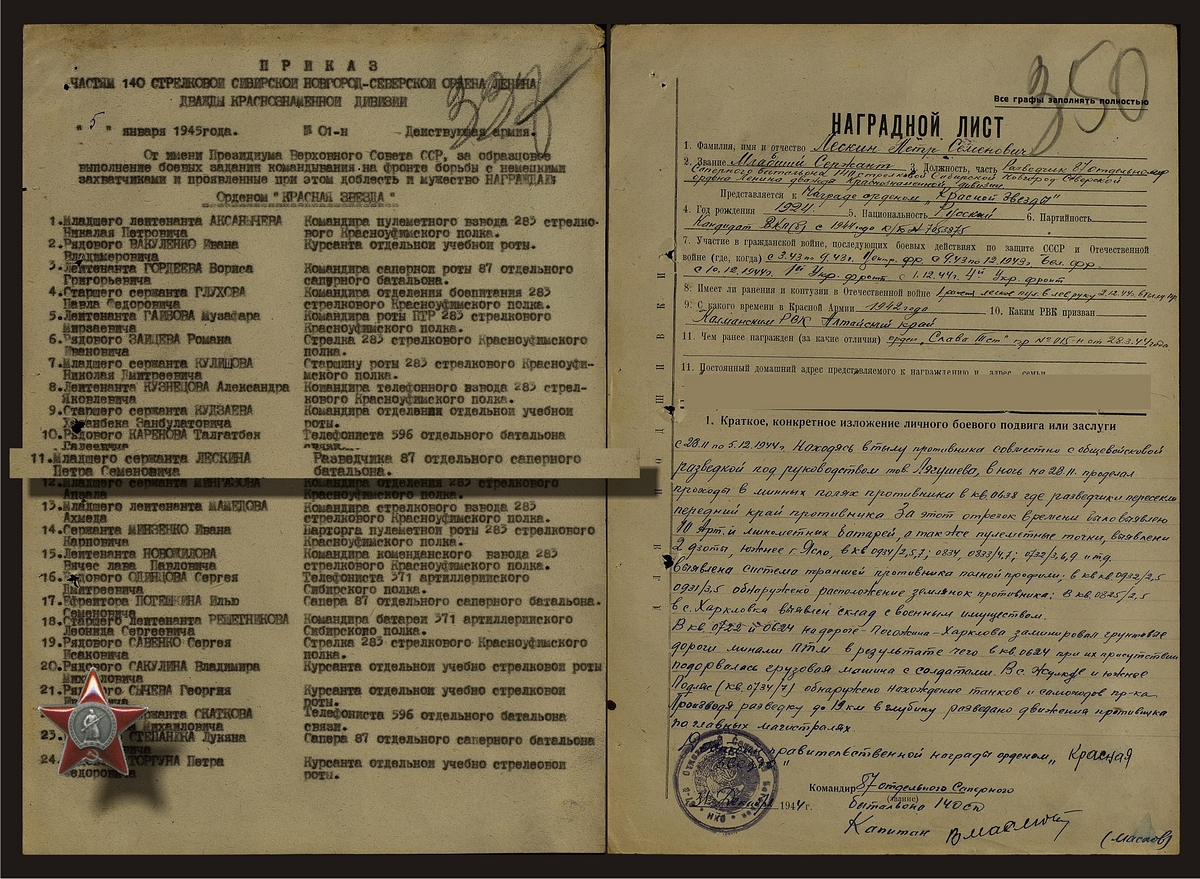 П Р И К А З
ЧАСТЯМ 140 СТРЕЛКОВОЙ СИБИРСКОЙ НОВГОРОД-СЕВЕРСКОЙ ОРДЕНА ЛЕНИНА
ДВАЖДЫ КРАСНОЗНАМЕННОЙ ДИВИЗИИ
"5" января 1945года. № 01-н Действующая армия.
От имени Президиума Верховного Совета ССР, за образцовое
выполнение боевых заданий командования на фронте борьбы с немецкими
захватчиками и проявленные при этом доблесть и мужество НАГРАЖДАЮ
Орденом "КРАСНАЯ ЗВЕЗДА"
1. Младшего лейтенанта Командира пулеметного взвода 283 стрелко-
Николая Петровича вого Красноуфимского полка.
2. Рядового ВАКУЛЕНКО Ивана Курсанта отдельной учебной роты.
Владимировича
3. Лейтенанта ГОРДЕЕВА Бориса Командира саперной роты 87 отдельного
Григорьевича саперного батальона.
4. Старшего сержанта ГЛУХОВА Командира отделения боепитания 283
Павла Федоровича стрелкового Красноуфимского полка.
5. Лейтенанта ГАИБОВА Музафара Командира роты ПТР 283 стрелкового
Мирзаевича Красноуфимского полка.
6. Рядового ЗАЙЦЕВА Романа Стрелка 283 стрелкового Красноуфимского
Ивановича полка.
7. Младшего сержанта КУЛИШОВА Старшину роты 283 стрелкового Красноуфи-
Николая Дмитреевича мского полка.
8. Лейтенанта КУЗНЕЦОВА Александра Командира телефонного взвода 283 стрел-
Яковлевича кового Красноуфимского полка.
9. Старшего сержанта КУДЗАЕВА Командира отделения отдельной учебной
Занбулатовича роты.
10. Рядового КАРЕНОВА Талгатбек Телефониста 596 отдельного батальона
11. Младшего сержанта ЛЕСКИНА Разведчика 87 отдельного саперного
Петра Семеновича батальона.
12. Младшего сержанта Командира отделения 283
Красноуфимского полка.
13. Младшего лейтенанта МАМЕДОВА Командира взвода 283
Ахмеда стрелкового Красноуфимского полка.
14. Сержанта МИНЗЕНКО Ивана Парторга пулеметной роты 283 стрелкового
Карповича Красноуфимского полка.
15. Лейтенанта НОВОЖИЛОВА Командира комендантского взвода 283
Вячес лава Павловича стрелкового Красноуфимского полка.
16. Рядового ОДИНЦОВА Сергея Телефониста 371 артиллерийского
Дмитреевича Сибирского полка.
17. Ефрейтора ПОТЕШКИНА Илью Сапера 87 отдельного саперного батальона.
Семеновича
18. Старшего лейтенанта РЕШЕТНИКОВА Командира батареи 371 артиллерийского
Леонида Сергеевича Сибирского полка.
19. Рядового САВЕНКО Сергея Стрелка 283 стрелкового Красноуфимского
Исаковича полка.
20. Рядового САКУЛИНА Владимира Курсанта отдельной учебно стрелковой роты
Михайловича
21. Рядового СЫЧЕВА Георгия Курсанта отдельной учебно стрелковой
роты.
СКАТКОВА Телефониста 596 отдельного батальона
Михайловича связи.
23. СТЕПАНИНА Лукяна Сапера 87 отдельного саперного батальона
24. ТОРГУНА Петра Курсанта отдельной учебно стрелковой
Федоровича роты.
350
Все графы заполнять полностью
НАГРАДНОЙ ЛИСТ
1. Фамилия, имя и отчество Лескин Петр Семенович
2. Звание Младший Сержант 3. Должность, часть Разведчик 87 отдельного
Саперного батальона 140 стрелковой Сибирской Новгород Северской
ордена Ленина дважды Краснознаменной дивизии
Представляется к Награде орденом „Красной Звезды"
4. Год рождения 1924 5. Национальность Русский 6. Партийность
Кандидат ВКП(б) с 1944 года к/к № 7053875
7. Участие в гражданской войне, последующих боевых действиях по защите СССР и Отечественной
войне (где, когда) с 3.43 по 9.43г. Центр. фр с 9.43 по 12.1943г. Бел. фр.
с 10.12.1944г. 1й Укр. фронт с 1.12.44г. 4й Укр. фронт
8. Имеет ли ранения и контузии в Отечественной войне 1 ранен. легкое пул. в лев руку 2.12.44г.
9. С какого времени в Красной Армии 1942 года 10. Каким РВК призван
Калманским РВК Алтайский край
11. Чем ранее награжден (за какие отличия) орден „Слава IIIст" пр № 015-н от 28.3.44 года
11. Постоянный домашний адрес представляемого к награждению и адрес семьи
1. Краткое, конкретное изложение личного боевого подвига или заслуги
с 28.11 по 5.12.1944г. Находясь в тылу противника совместно с общевойсковой
разведкой под руководством тов Лягушева, в ночь на 28.11. проделал
проходы в минных полях противника в кв. 0638 где разведчики пересекли
передний край противника За этот отрезок времени было выявлено
10 Арт. и минометных батарей, а так же пулеметные точки, выявлены
2 дзоты, южнее г. Ясло, в кв 0931/2,5,7; 0834, 0833/4,7; 0732/3,6,9 и тд.
Выявлена система траншей противника полной профили: в кв кв 0932/2,5
0931/3,5 обнаружено расположение землянок противника; в кв 0825/2,5
в с. Харкловка выявлен склад с военным имуществом.
В кв 0722 и 0624 на дороге - Погожина - Харклова заминировал грунтовые
дороги минами ПТМ в результате чего в кв 0624 при их присутствии
подорвалась грузовая машина с солдатами. В с. и южнее
(кв. 0734/7) обнаружено нахождение танков и самоходов пр-ка.
Производя разведку до 19 км в глубину разведано движения противника
по главных магистралях
правительственной награды орденом „Красная
Командир 87 отдельного Саперного
(звание)
батальона 140сд
31 Декабря 1944г.
Капитан
(Маслов)